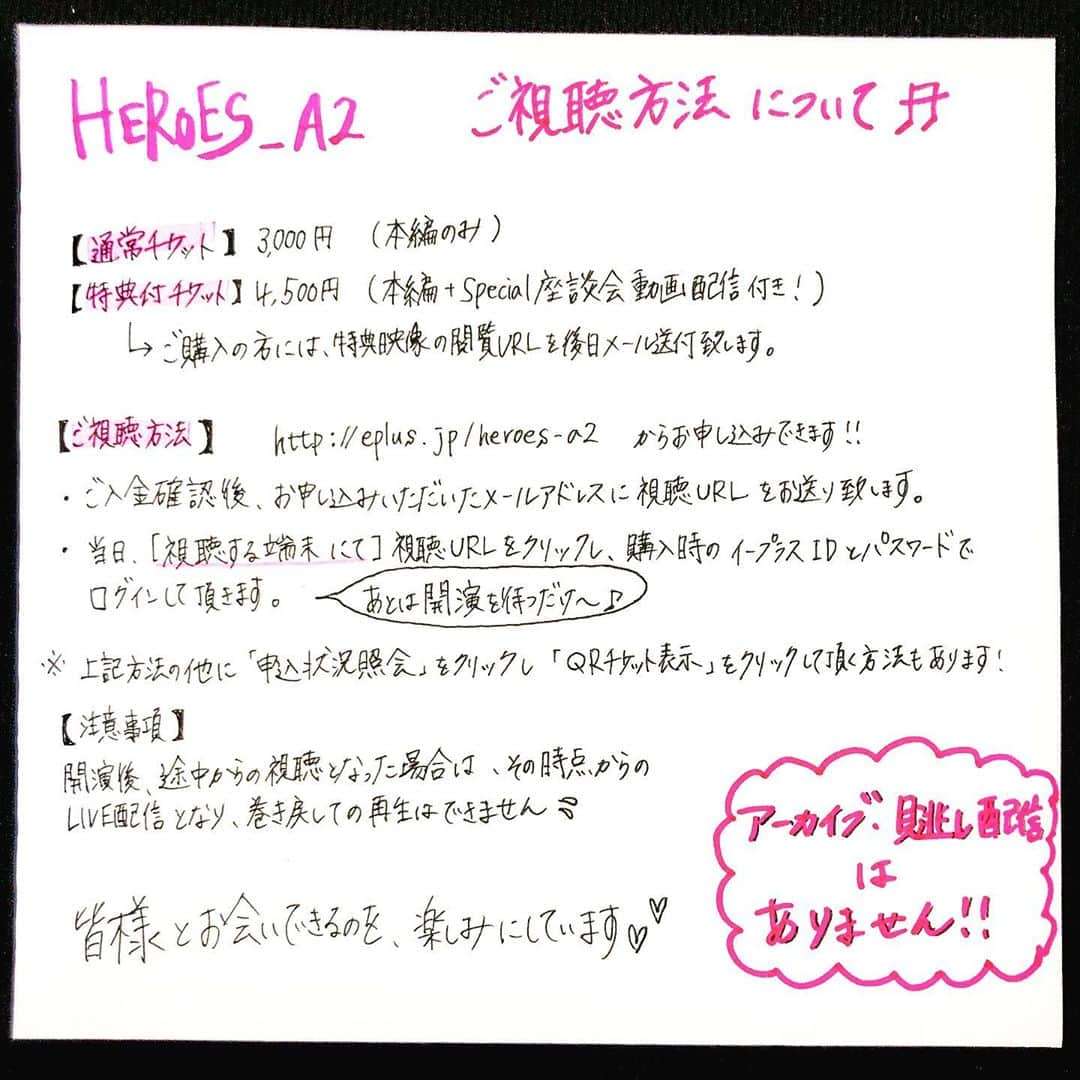 HEROES_A2 ご視聴方法について♬
【通常チケット】 3,000円 (本編のみ)
【特典付チケット】 4,500円 (本編+Special座談会動画配信付き!)
↳ご購入の方には、特典映像の閲覧URLを後日メール送付致します。
【ご視聴方法】 http://eplus.jp/heroes-a2 からお申し込みできます!!
・ご入金確認後、お申し込みいただいたメールアドレスに視聴URLをお送り致します。
・当日、[視聴する端末にて]視聴URLをクリックし、購入時のイープラスIDとパスワードで
ログインして頂きます。 あとは開演を待つだけ〜♪
※上記方法の他に「申込状況照会」をクリックし「QRチケット表示」をクリックして頂く方法もあります!
【注意事項】
開演後、途中からの視聴となった場合は、その時点からの
LIVE配信となり、巻き戻しての再生はできません
アーカイブ・見逃し配信
は
ありません!!
皆様とお会いできるのを、楽しみにしています♡♡